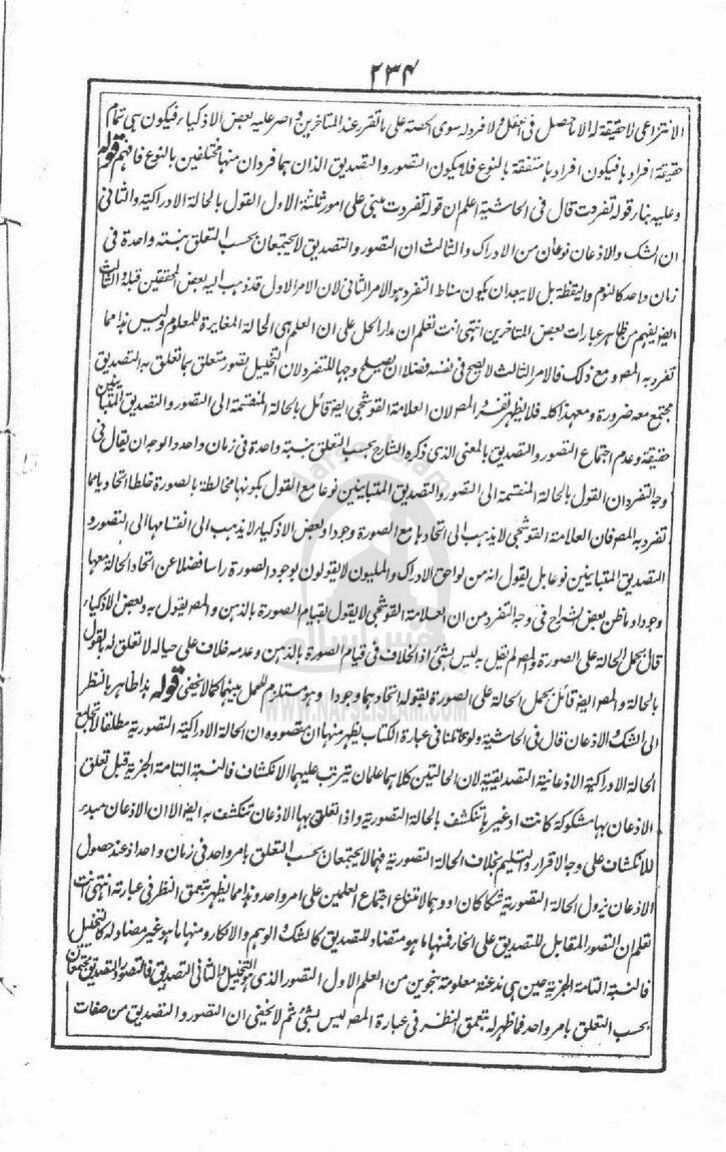 ۲۳۴
الانتزاعى لا حقيقة له الا ما حصل فى العقل ولا فرد له سوى الحصة على ما تقرر عند المتاخرين واصر عليه بعض الاذكياء فيكون هى تمام
حقيقة افرادها فيكون افرادها متفقة بالنوع فلا يكون التصور والتصديق الذان هما فردان منها مختلفين بالنوع فافهم قوله
وعليه بناء قوله تفردت قال فى الحاشية اعلم ان قوله تفردت مبنى على امور ثلثة الاول القول بالحالة الادراكية والثانى
ان الشك والاذعان نوعان من الادراك والثالث ان التصور والتصديق لا يجتمعان بحسب التعلق بنسبة واحدة فى
زمان واحد كالنوم واليقظة بل لا يبعد ان يكون مناط التفرد هو الامر الثانى لان الامر الاول قد ذهب اليه بعض المحققين قبله والثالث
ايضا يفهم من ظاهر عبارات بعض المتاخرين انتهى انت تعلم ان مدار الحل على ان العلم هى الحالة المغايرة للمعلوم وليس هذا مما
تفرد به المصـ ومع ذلك فالامر الثالث لا يصح فى نفسه فضلا ان يصلح وجها للتفرد لان التخييل تصور متعلق بما تعلق به التصديق
مجتمع معه ضرورة ومع هذا كله فلا يظهر تفرد المصـ لان العلامة القوشجى ايضا قائل بالحالة المنقسمة الى التصور والتصديق المتباينين
حقيقة وعدم اجتماع التصور والتصديق بالمعنى الذى ذكره الشارح بحسب التعلق بنسبة واحدة فى زمان واحد والوجه ان يقال فى
وجه التفرد ان القول بالحالة المنقسمة الى التصور والتصديق المتباينين نوعا مع القول بكونها مخالطة بالصورة خلطا اتحاديا مما
تفرد به المصـ فان العلامة القوشجى لا يذهب الى اتحادها مع الصورة وجودا وبعض الاذكياء لا يذهب الى انقسامها الى التصور و
التصديق المتباينين نوعا بل يقول انه من لواحق الادراك والمليون لا يقولون بوجود الصورة راسا فضلا عن اتحاد الحالة معها
وجودا وما ظن بعض الشراح فى وجه التفرد من ان العلامة القوشجى لا يقول بقيام الصورة بالذهن والمصـ يقول به وبعض الاذكياء
قال بحمل الحالة على الصورة والمصـ لم يقل به ليس بشئ اذ الخلاف فى قيام الصورة بالذهن وعدمه خلاف على حياله لا تعلق له بالقول
بالحالة والمصـ ايضا قائل بحمل الحالة على الصورة لقوله اتحادهما وجودا وهو مستلزم للحمل بينهما كما لا يخفى قوله هذا ظاهر بالنظر
الى الشك والاذعان قال فى الحاشية ولو تاملنا فى عبارة الكتاب يظهر منها ان مقصوده ان الحالة الادراكية التصورية مطلقا لا تجامع
الحالة الادراكية الاذعانية التصديقية لان الحالتين كلاهما علمان يترتب عليهما الانكشاف فالنسبة التامة الجزية قبل تعلق
الاذعان بها مشكوكة كانت او غيرها تنكشف بالحالة التصورية واذا تعلق بها الاذعان تنكشف به ايضا الا ان الاذعان مبدء
للانكشاف على وجه الاقرار والتسليم بخلاف الحالة التصورية فهما لا يجتمعان بحسب التعلق بامر واحد فى زمان واحد اذ عند حصول
الاذعان يزول الحالة التصورية شكا كان او وهما لامتناع اجتماع العلمين على امر واحد وهذا مما يظهر بتعمق النظر فى عبارته انتهى انت
تعلم ان التصور المقابل للتصديق على انحاء فمنها ما هو متضاد للتصديق كالشك والوهم والانكار ومنها ما هو غير مضاد له كالتخييل
فالنسبة التامة الجزية حين هى مذعنة معلومة بنحوين من العلم الاول التصور الذى هو التخييل والثانى التصديق فالتصور والتصديق يجتمعان
بحسب التعلق بامر واحد فما ظهر له بتعمق النظر فى عبارة المصـ ليس بشئ ثم لا يخفى ان التصور والتصديق من صفات
WWW.NAFSEISLAM.COM